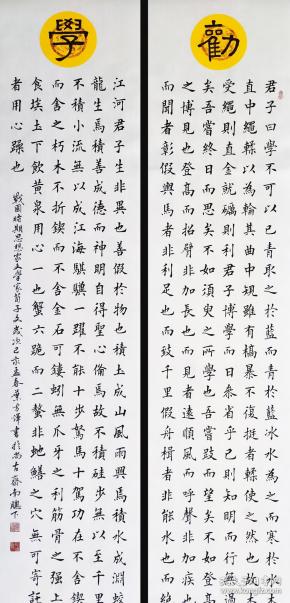 勸
君子曰學不可以已青取之於藍而青於藍冰水為之而寒於水木
直中繩輮以為輪其曲中規雖有槁暴不復挺者輮使之然也故木
受繩則直金就礪則利君子博學而日參省乎己則知明而行無過
矣吾嘗終日而思矣不如須臾之所學也吾嘗跂而望矣不如登高
之博見也登高而招臂非加長也而見者遠順風而呼聲非加疾也
而聞者彰假輿馬者非利足也而致千里假舟楫者非能水也而絕
學
江河君子生非異也善假於物也積土成山風雨興焉積水成淵蛟
龍生焉積善成德而神明自得聖心備焉故不積硅步無以至千里
不積小流無以成江海騏驥一躍不能十步駑馬十駕功在不舍鍥
而舍之朽木不折鍥而不舍金石可鏤蚓無爪牙之利筋骨之強上
食埃土下飲黃泉用心一也蟹六跪而二螯非蛇鱔之穴無可寄託
者用心躁也
戰國時期思想家文學家荀子文歲次己亥孟春葉書於尚古齋南牕下